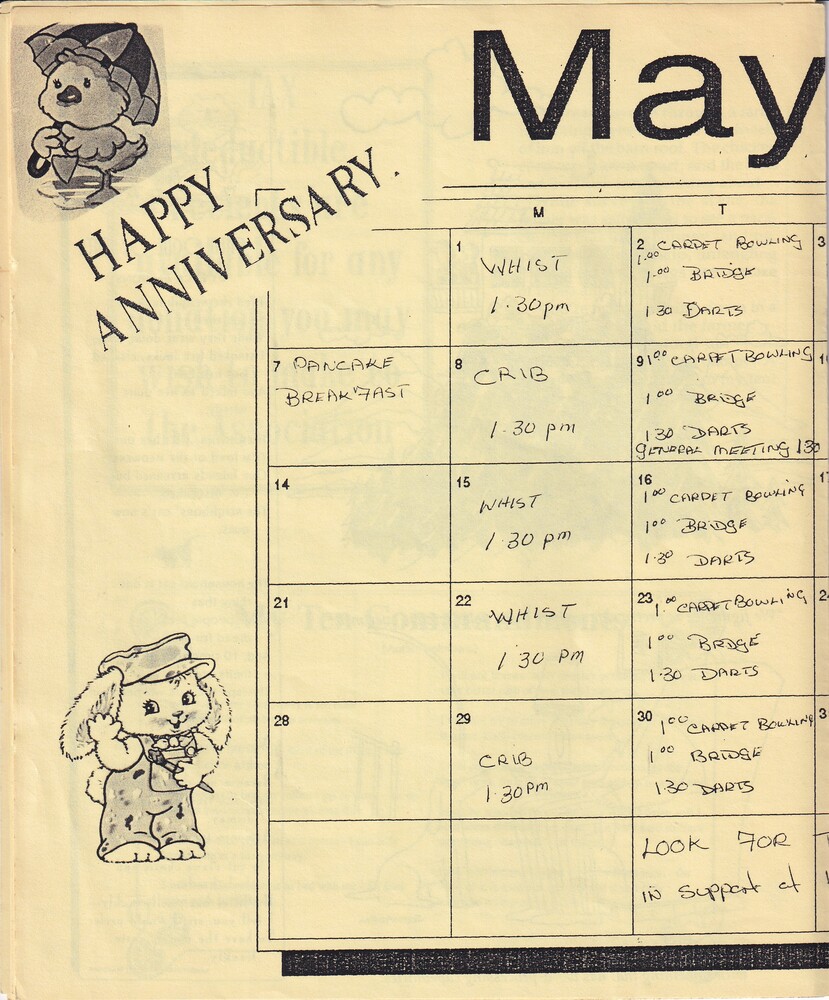 May
HAPPY
ANNIVERSARY.
M T
1 WHIST
1.30pm
2 CARPET BOWLING
1.00
1.00 BRIDGE
1 30 DARTS
3
7 PANCAKE
BREAKFAST
8 CRIB
1.30 pm
9 1 00 CARPET BOWLING
1 00 BRIDGE
1 30 DARTS
GENERAL MEETING 1 30
14
15 WHIST
1.30 pm
16
1 00 CARPET BOWLING
1 00 BRIDGE
1.30 DARTS
21
22 WHIST
1 30 pm
23 1.00 CARPET BOWLING
1 00 BRIDGE
1.30 DARTS
28
29
CRIB
1.30pm
30 1 00 CARPET BOWLING
1 00 BRIDGE
1.30 DARTS
LOOK FOR
in support of